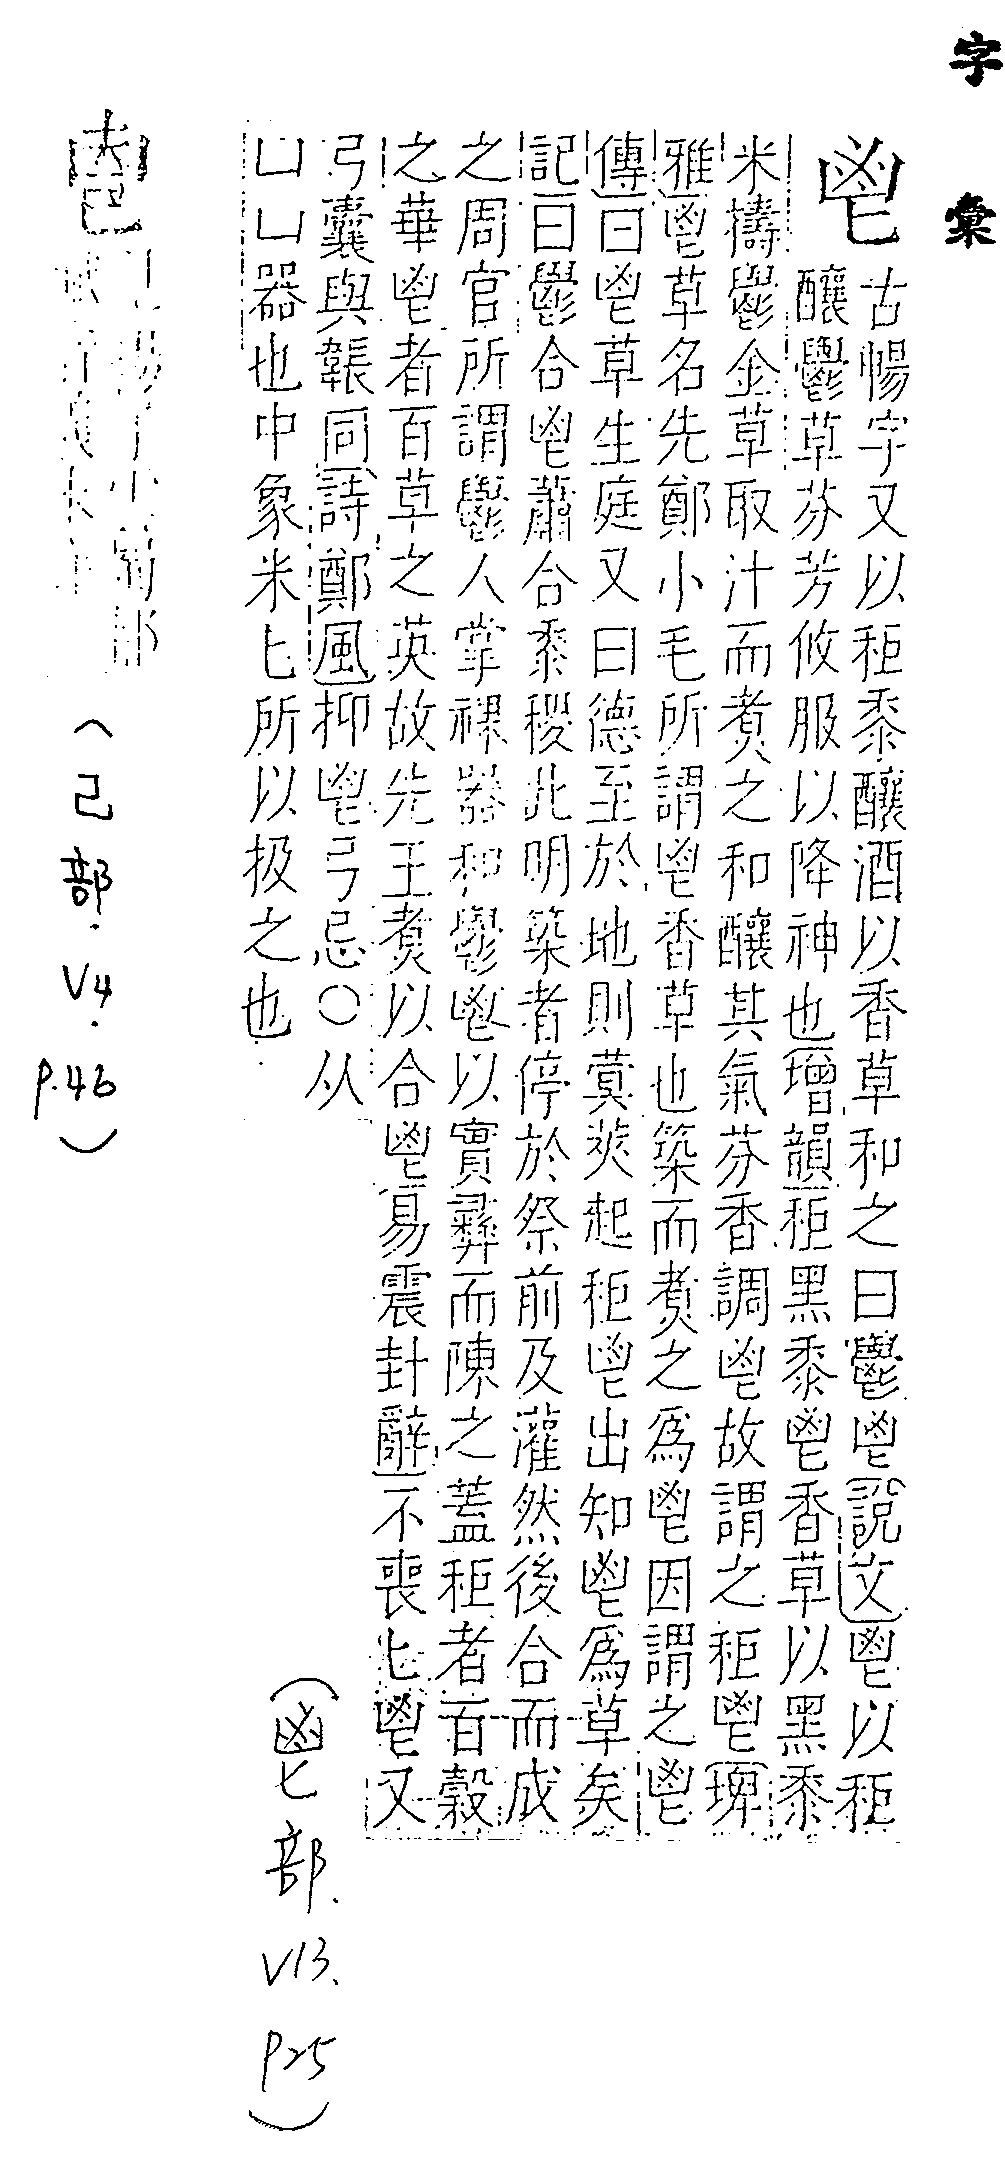 字彙
鬯
古暢字又以秬黍釀酒以香草和之曰鬱鬯說文鬯以秬
釀鬱草芬芳攸服以降神也增韻秬黑黍鬯香草以黑黍
米擣鬱金草取汁而煑之和釀其氣芬香調鬯故謂之秬鬯埤
雅鬯草名先鄭小毛所謂鬯香草也築而煑之爲鬯因謂之鬯
傳曰鬯草生庭又曰德至於地則蓂莢起秬鬯出知鬯爲草矣
記曰鬱合鬯蕭合黍稷此明築者停於祭前及灌然後合而成
之周官所謂鬱人掌祼器和鬱鬯以實彝而陳之蓋秬者百穀
之華鬯者百草之英故先王煑以合鬯易震卦辭不喪匕鬯又
弓囊與韔同詩鄭風抑鬯弓忌○从
凵凵器也中象米匕所以扱之也
(鬯部.
V13.
P25)
(己部.
V4.
P.46)